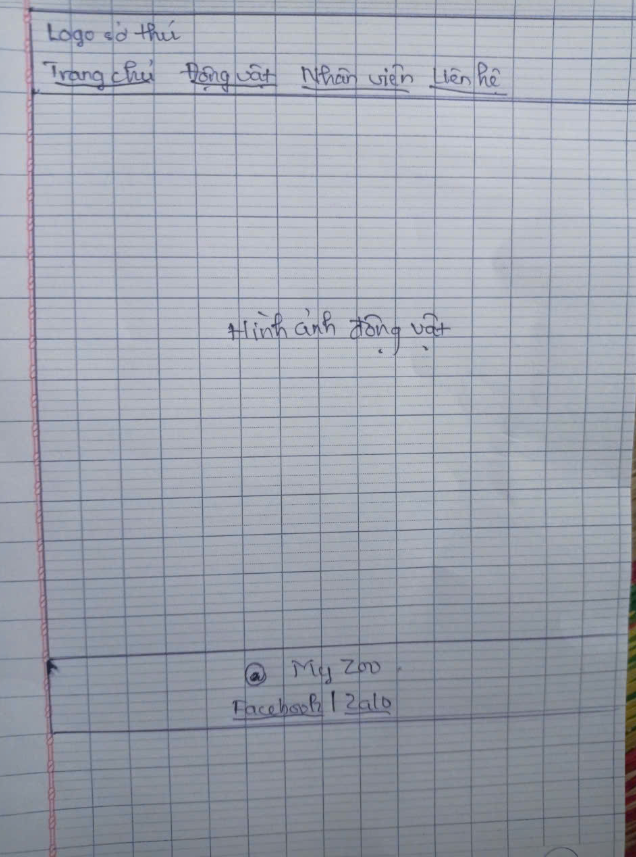 Logo sở thú
Trang chủ Động vật Nhân viên Liên hệ
Hình ảnh động vật
@ My Zoo
Facebook | Zalo